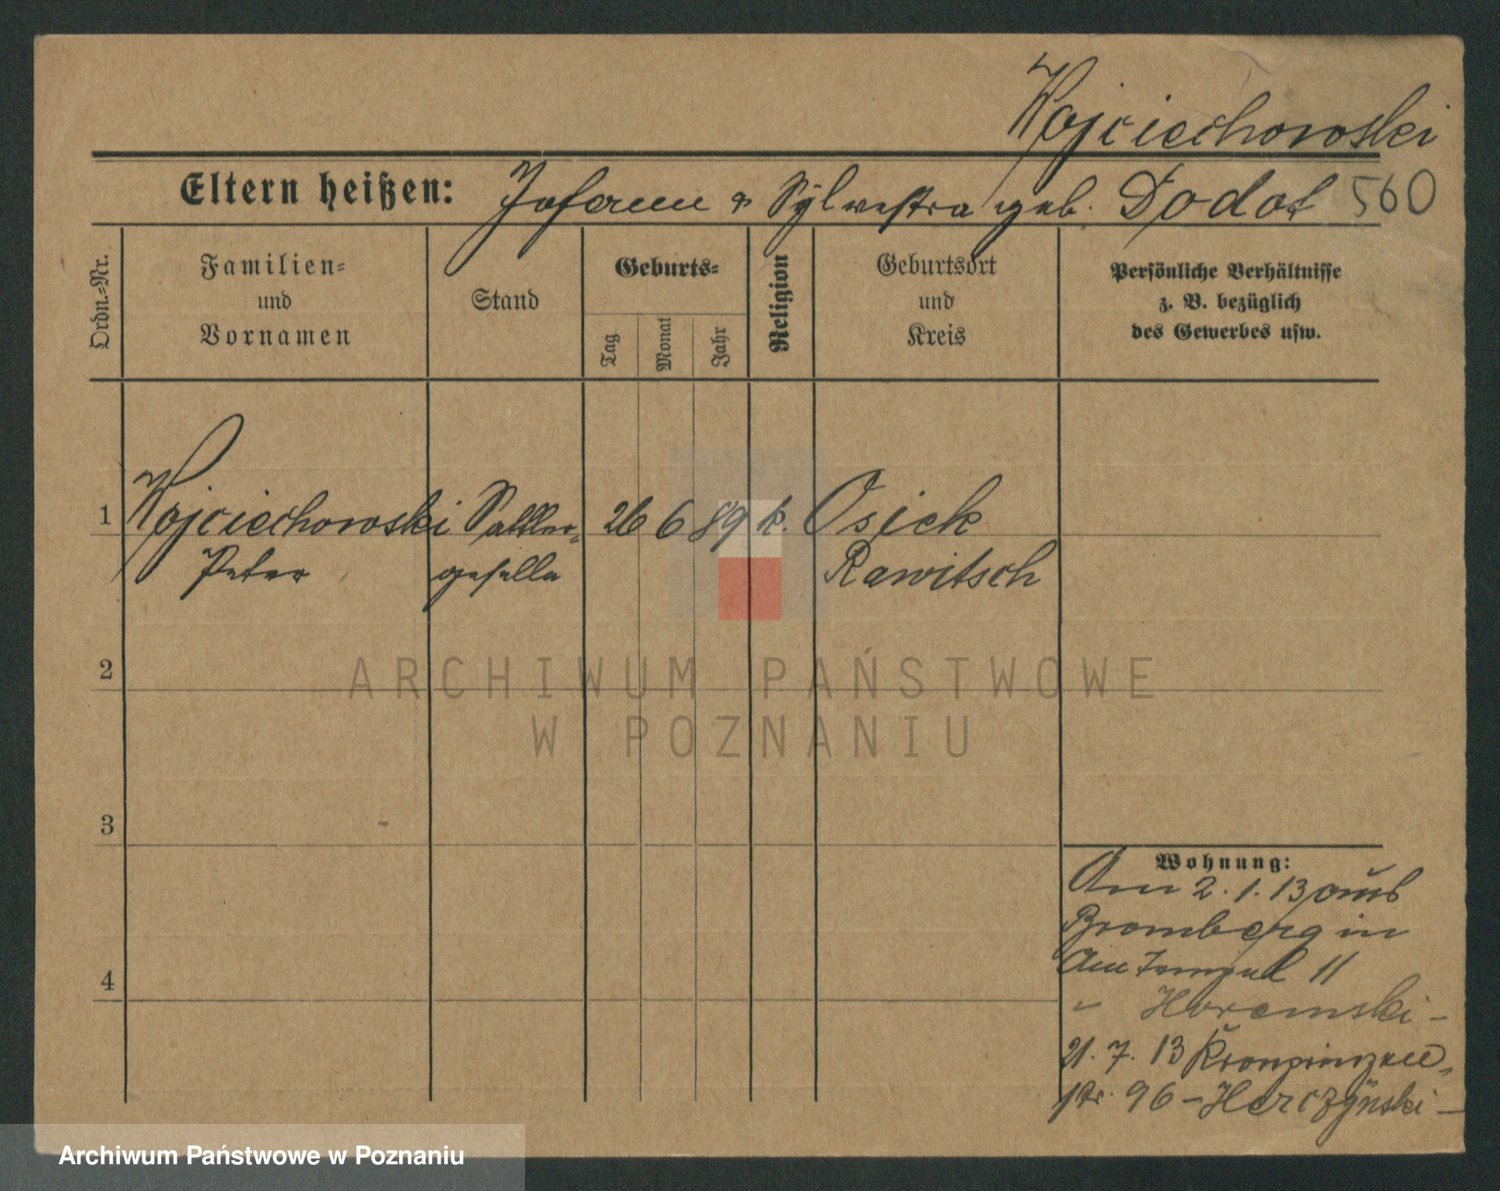 Wojciechowski
Eltern heißen: Johann & Sylvestra geb. Dodot 560
Ordn.=Nr.
Familien=
und
Vornamen
Stand
Geburts=
Tag
Monat
Jahr
Religion
Geburtsort
und
Kreis
Persönliche Verhältnisse
z. B. bezüglich
des Gewerbes usw.
1 Wojciechowski Sattler= 26 6 89 k. Osiek
Peter geselle Rawitsch
2
ARCHIWUM PAŃSTWOWE
W POZNANIU
3
Wohnung:
Am 2.1.13 aus
Bromberg in
Am Tempel 11
4
21.7.13 Kronprinzen
str. 96 – Herczyński –
Archiwum Państwowe w Poznaniu